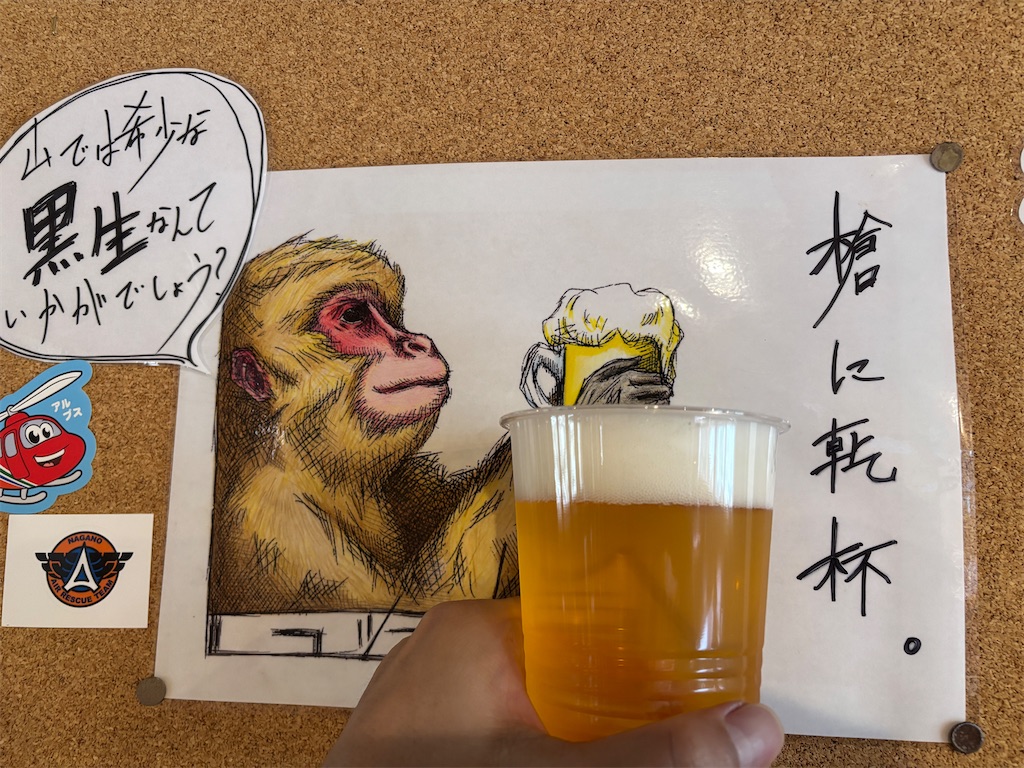 山では希少な
黒生なんて
いかがでしょう?
槍に乾杯。
アル
プス
NAGANO
AIR RESCUE TEAM